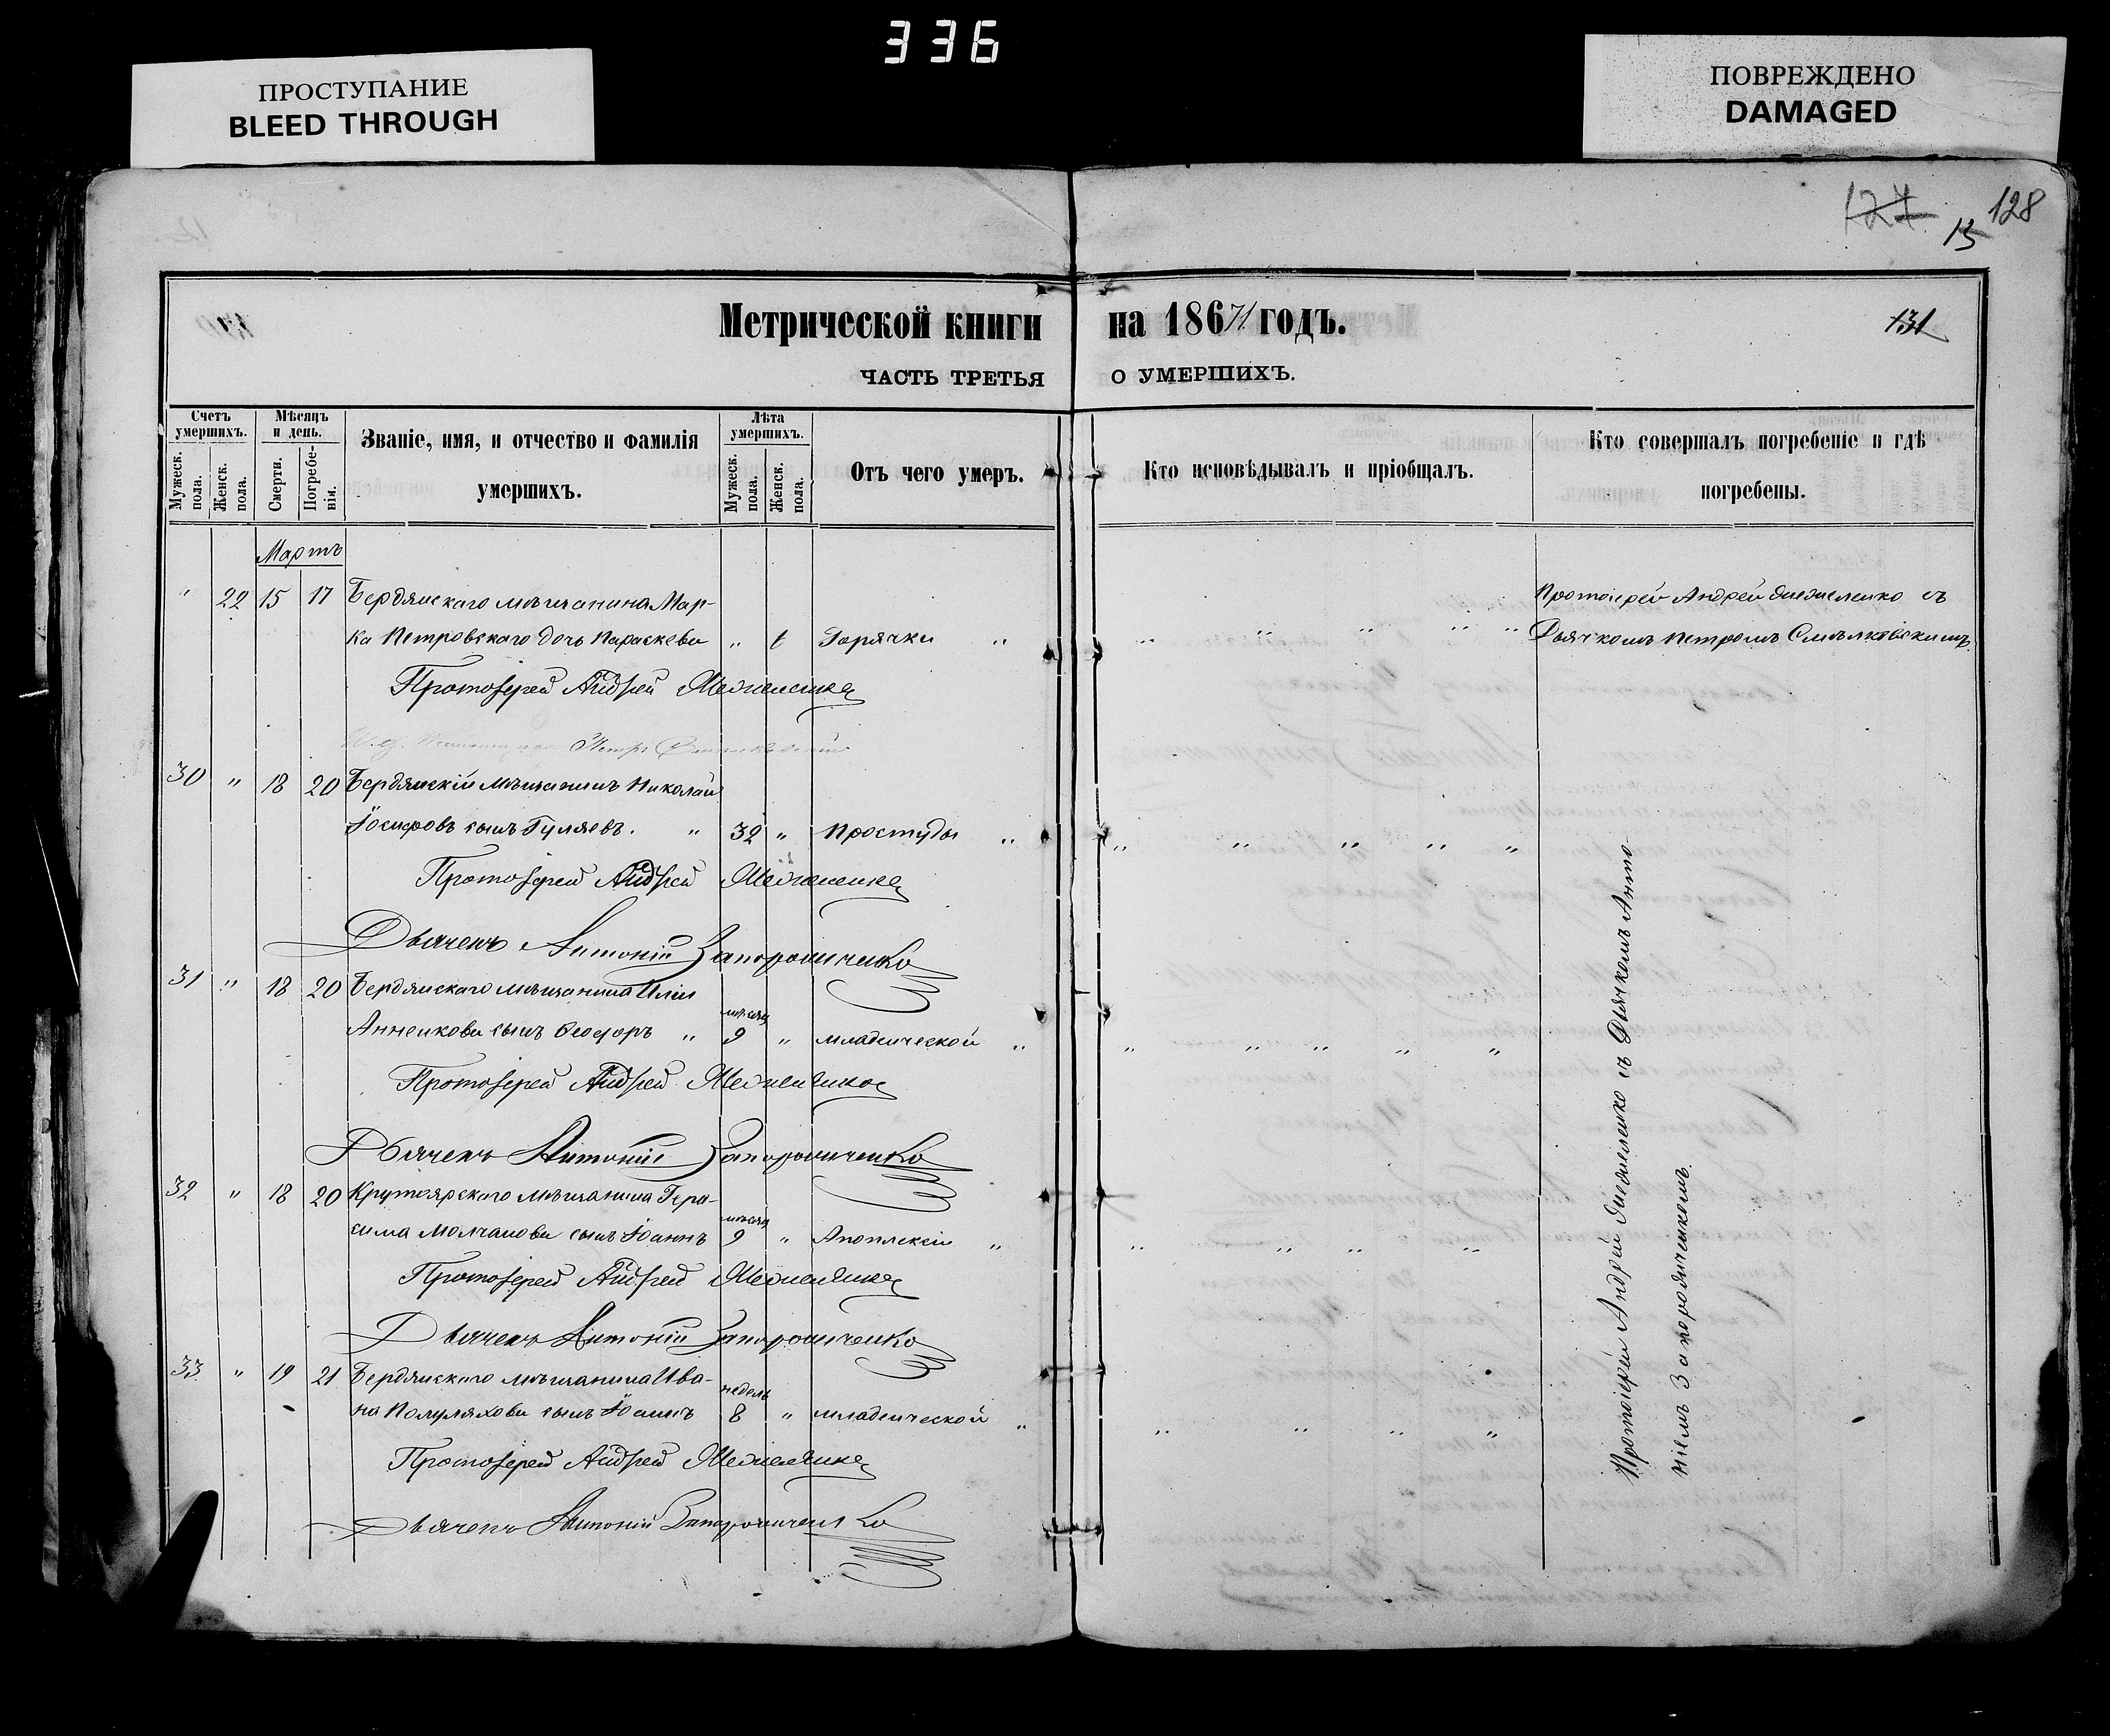 336
ПРОСТУПАНИЕ
BLEED THROUGH
ПОВРЕЖДЕНО
DAMAGED
127
13
128
Метрической книги на 18671 годъ.
131
ЧАСТЬ ТРЕТЬЯ О УМЕРШИХЪ.
Счетъ умершихъ.
Мужеск. пола.
Женск. пола.
Мѣсяцъ и день.
Смерти.
Погребе-нія.
Званіе, имя, и отчество и фамилія
умершихъ.
Лѣта умершихъ.
Мужеск. пола.
Женск. пола.
Отъ чего умеръ.
Кто исповѣдывалъ и пріобщалъ.
Кто совершалъ погребеніе и гдѣ
погребены.
Мартъ
" 22 15 17 Бердянскаго мѣщанина Мар- Протоіерей Андрей съ
ка Петровскаго дочь Параскева " Горячки " " " " " " Дьячкомъ Петромъ
Протоіерей Андрей
Петръ
30 " 18 20 Бердянскій мѣщанинъ Николай
Іосифовъ сынъ Гуляевъ. " 32 " Простуды " " " " " "
Протоіерей Андрей
Дьячекъ Антоній Запорожченко
31 " 18 20 Бердянскаго мѣщанина Иліи
мѣсяц
Анненкова сынъ Ѳеодоръ " 9 " младенческой " " " " " "
Протоіерей Андрей
Дьячекъ Антоній Запорожченко
32 " 18 20 Крутоярскаго мѣщанина Гера-
мѣсяц
сима Молчанова сынъ Іоаннъ 9 " Апоплексіи " " " " "
Протоіерей Андрей
Дьячекъ Антоній Запорожченко
33 " 19 21 Бердянскаго мѣщанина Ива-
недель
на Полуляхова сынъ Іоаннъ 8 " младенческой " " " " "
Протоіерей Андрей
Дьячекъ Антоній Запорожченко
Протоіерей Андрей съ Дьячкомъ Анто-
ніемъ Запорожченкомъ.